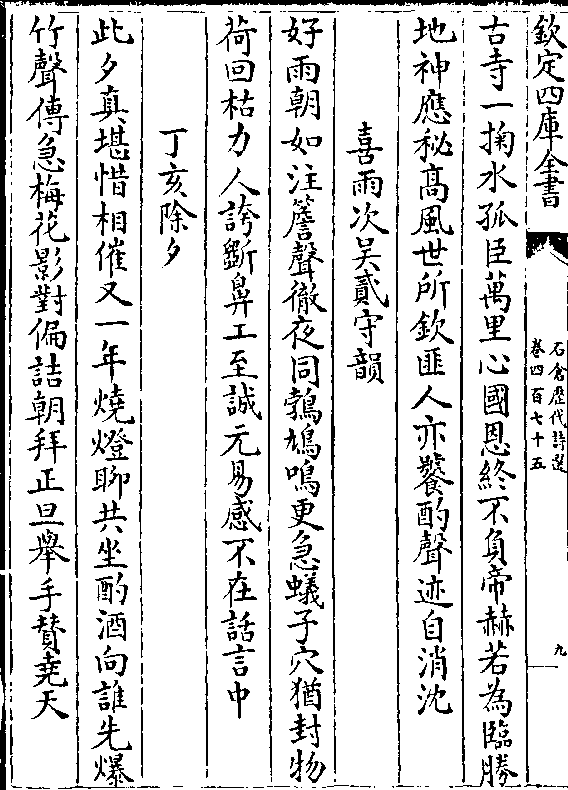 欽定四庫全書
石倉歷代詩選
卷四百七十五
九
古寺一掬水孤臣萬里心國恩終不負帝赫若為臨勝
地神應秘高風世所欽匪人亦饕酌聲迹自消沈
喜雨次吴貳守韻
好雨朝如注簷聲徹夜同鶉鳩鳴更急蟻子穴猶封物
荷回枯力人誇斷鼻工至誠元易感不在話言中
丁亥除夕
此夕真堪惜相催又一年燒燈聊共坐酌酒向誰先爆
竹聲傳急梅花影對偏詰朝拜正旦舉手賛堯天